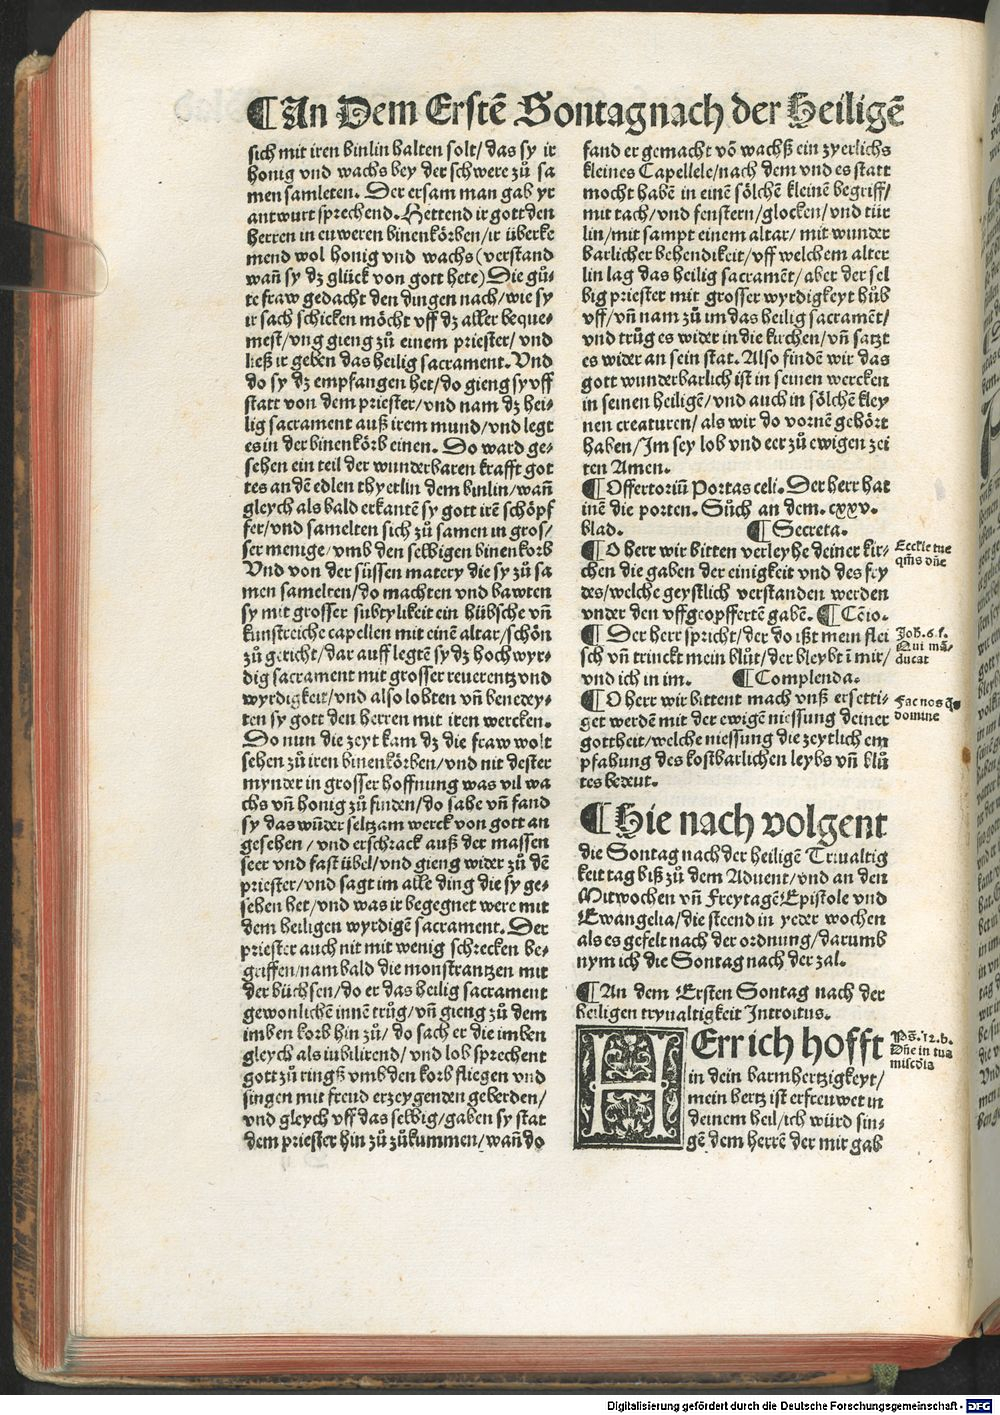 ¶ An Dem Erstẽ Sontag nach der Heiligẽ
sich mit iren binlin halten solt/ das sy ir
honig vnd wachs bey der schwere zů sa
men samleten. Der ersam man gab yr
antwurt sprechend. Hettend ir gott den
herren in euweren binenkörben/ ir überke
mend wol honig vnd wachs (verstand
wañ sy dz glück von gott hete) Die gů-
te fraw gedacht den dingen nach/ wie sy
ir sach schicken möcht vff dz aller beque-
mest/ vng gieng zů einem priester/ vnd
ließ ir geben das heilig sacrament. Vnd
do sy dz empfangen het/ do gieng sy vff
statt von dem priester/ vnd nam dz hei-
lig sacrament auß irem mund/ vnd legt
es in der binenkörb einen. Do ward ge-
sehen ein teil der wunderbaren krafft got
tes an dẽ edlen thyerlin dem binlin/ wañ
gleych als bald erkantẽ sy gott irẽ schöpf
fer/ vnd samelten sich zů samen in gros/
ser menige/ vmb den selbigen binenkorb
Vnd von der süssen matery die sy zů sa
men samelten/ do machten vnd bawten
sy mit grosser subtylikeit ein hübsche vñ
kunstreiche capellen mit einẽ altar/ schön
zů gericht/ dar auff legtẽ sy dz hochwyr-
dig sacrament mit grosser reuerentz vnd
wyrdigkeit/ vnd also lobten vñ benedey-
ten sy gott den herren mit iren wercken.
Do nun die zeyt kam dz die fraw wolt
sehen zů iren binenkörben/ vnd nit dester
mynder in grosser hoffnung was vil wa
chs vñ honig zů finden/ do sahe vñ fand
sy das wũder seltzam werck von gott an
gesehen/ vnd erschrack auß der massen
seer vnd fast übel/ vnd gieng wider zů dẽ
priester/ vnd sagt im alle ding die sy ge-
sehen het/ vnd was ir begegnet were mit
dem heiligen wyrdigẽ sacrament. Der
priester auch nit mit wenig schrecken be-
griffen/ nam bald die monstrantzen mit
der büchsen/ do er das heilig sacrament
gewonlichen innẽ trůg/ vñ gieng zů dem
imben korb hin zů/ do sach er die imben
gleych als iubilirend/ vnd lob sprechent
gott zů ringß vmb den korb fliegen vnd
singen mit freud erzeygenden geberden/
vnd gleych vff das selbig/ gaben sy stat
dem priester hin zů zůkummen/ wañ do
fand er gemacht võ wachß ein zyerlichs
kleines Capellele/ nach dem vnd es statt
mocht habẽ in einẽ sölchẽ kleinẽ begriff/
mit tach/ vnd fenstern/ glocken/ vnd tür
lin/ mit sampt einem altar/ mit wunder
barlicher behendikeit/ vff welchem alter
lin lag das heilig sacramẽt/ aber der sel
big priester mit grosser wyrdigkeyt hůb
vff/ vñ nam zů im das heilig sacramẽt/
vnd trůg es wider in die kirchen/ vñ satzt
es wider an sein stat. Also findẽ wir das
gott wunderbarlich ist in seinen wercken
in seinen heiligẽ/ vnd auch in sölchẽ kley
nen creaturen/ als wir do vornẽ gehört
haben/ Im sey lob vnd eer zů ewigen zei
ten Amen.
¶ Offertoriũ Portas celi. Der herr hat
inẽ die porten. Sůch an dem. cxxv.
blad. ¶ Secreta.
¶ O herr wir bitten verleyhe deiner kir-
chen die gaben der einigkeit vnd des fry
des/ welche geystlich verstanden werden
vnder den vffgeopffertẽ gabẽ. ¶ Cõio.
¶ Der herr spricht/ der do ißt mein flei
sch vñ trinckt mein blůt/ der bleybt ĩ mir/
vnd ich in im. ¶ Complenda.
¶ O herr wir bittent mach vnß ersetti-
get werdẽ mit der ewigẽ niessung deiner
gottheit/ welche niessung die zeytlich em
pfahung des kostbarlichen leybs vñ blů
tes bedeut.
¶ Hie nach volgent
die Sontag nach der heiligẽ Triualtig
keit tag biß zů dem Aduent/ vnd an den
Mitwochen vñ Freytagẽ Epistole vnd
Ewangelia/ die steend in yeder wochen
als es gefelt nach der ordnung/ darumb
nym ich die Sontag nach der zal.
¶ An dem Ersten Sontag nach der
heiligen tryualtigkeit Introitus.
HErr ich hofft
in dein barmhertzigkeyt/
mein hertz ist erfreuwet in
deinem heil/ ich würd sin-
gẽ dem herrẽ der mir gab
Ecclie tue
qm̃s dñe
Joh. 6. f.
Qui mã-
ducat
Fac nos q̃s
domine
Ps̃. 12. b.
Dñe in tua
miscõia
Digitalisierung gefördert durch die Deutsche Forschungsgemeinschaft - DFG